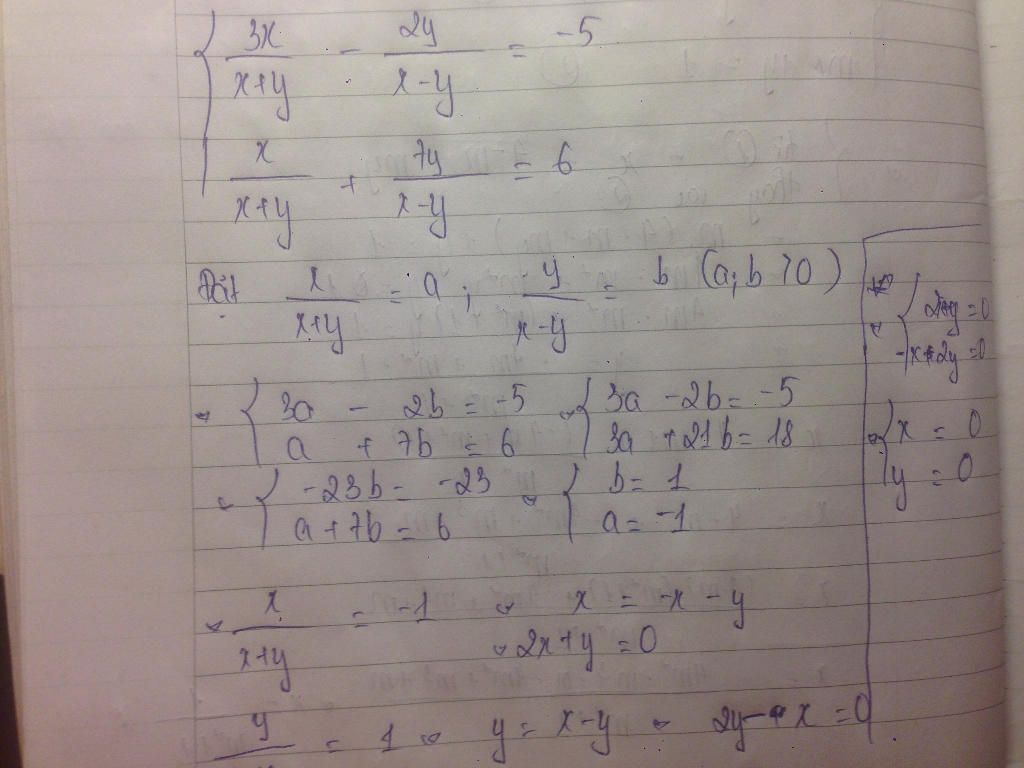 { 3x/(x+y) - 2y/(x-y) = -5
x/(x+y) + 7y/(x-y) = 6
Đặt x/(x+y) = a; y/(x-y) = b (a;b > 0)
{ 3a - 2b = -5 { 3a - 2b = -5
a + 7b = 6 3a + 21b = 18
{ -23b = -23 { b = 1
a + 7b = 6 a = -1
x/(x+y) = -1 x = -x - y
2x + y = 0
y = 1 y = x - y 2y - x = 0
{ 2x+y = 0
-x+2y = 0
{ x = 0
y = 0